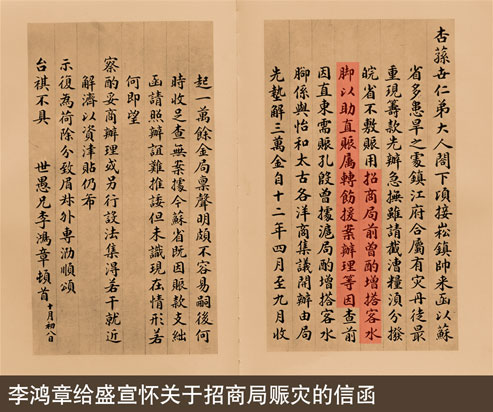 杏蓀世仁弟大人閣下頃接崧鎮帥來函以蘇
省多患旱之處鎮江府合屬有災丹徒最
重現籌款先辦急撫雖請截漕糧須分撥
皖省不敷賑用招商局前曾酌增搭客水
腳以助直賑屬轉飭援案辦理等因查前
因直東需賑孔殷曾據滬局酌增搭客水
腳係與怡和太古各洋商集議開辦由局
先墊解三萬金自十二年四月至九月收
起一萬餘金局稟聲明頗不容易嗣後何
時收足查無案據今蘇省既因賑款支絀
函請照辦誼難推諉但未識現在情形若
何即望
察酌妥商辦理或另行設法集淂若干就近
解濟以資津貼仍希
示復為荷除分致眉叔外專泐順頌
台祺不具 世愚兄李鴻章頓首 十月初八日
李鸿章给盛宣怀关于招商局赈灾的信函